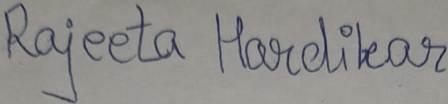 Rajeeta Hardikar